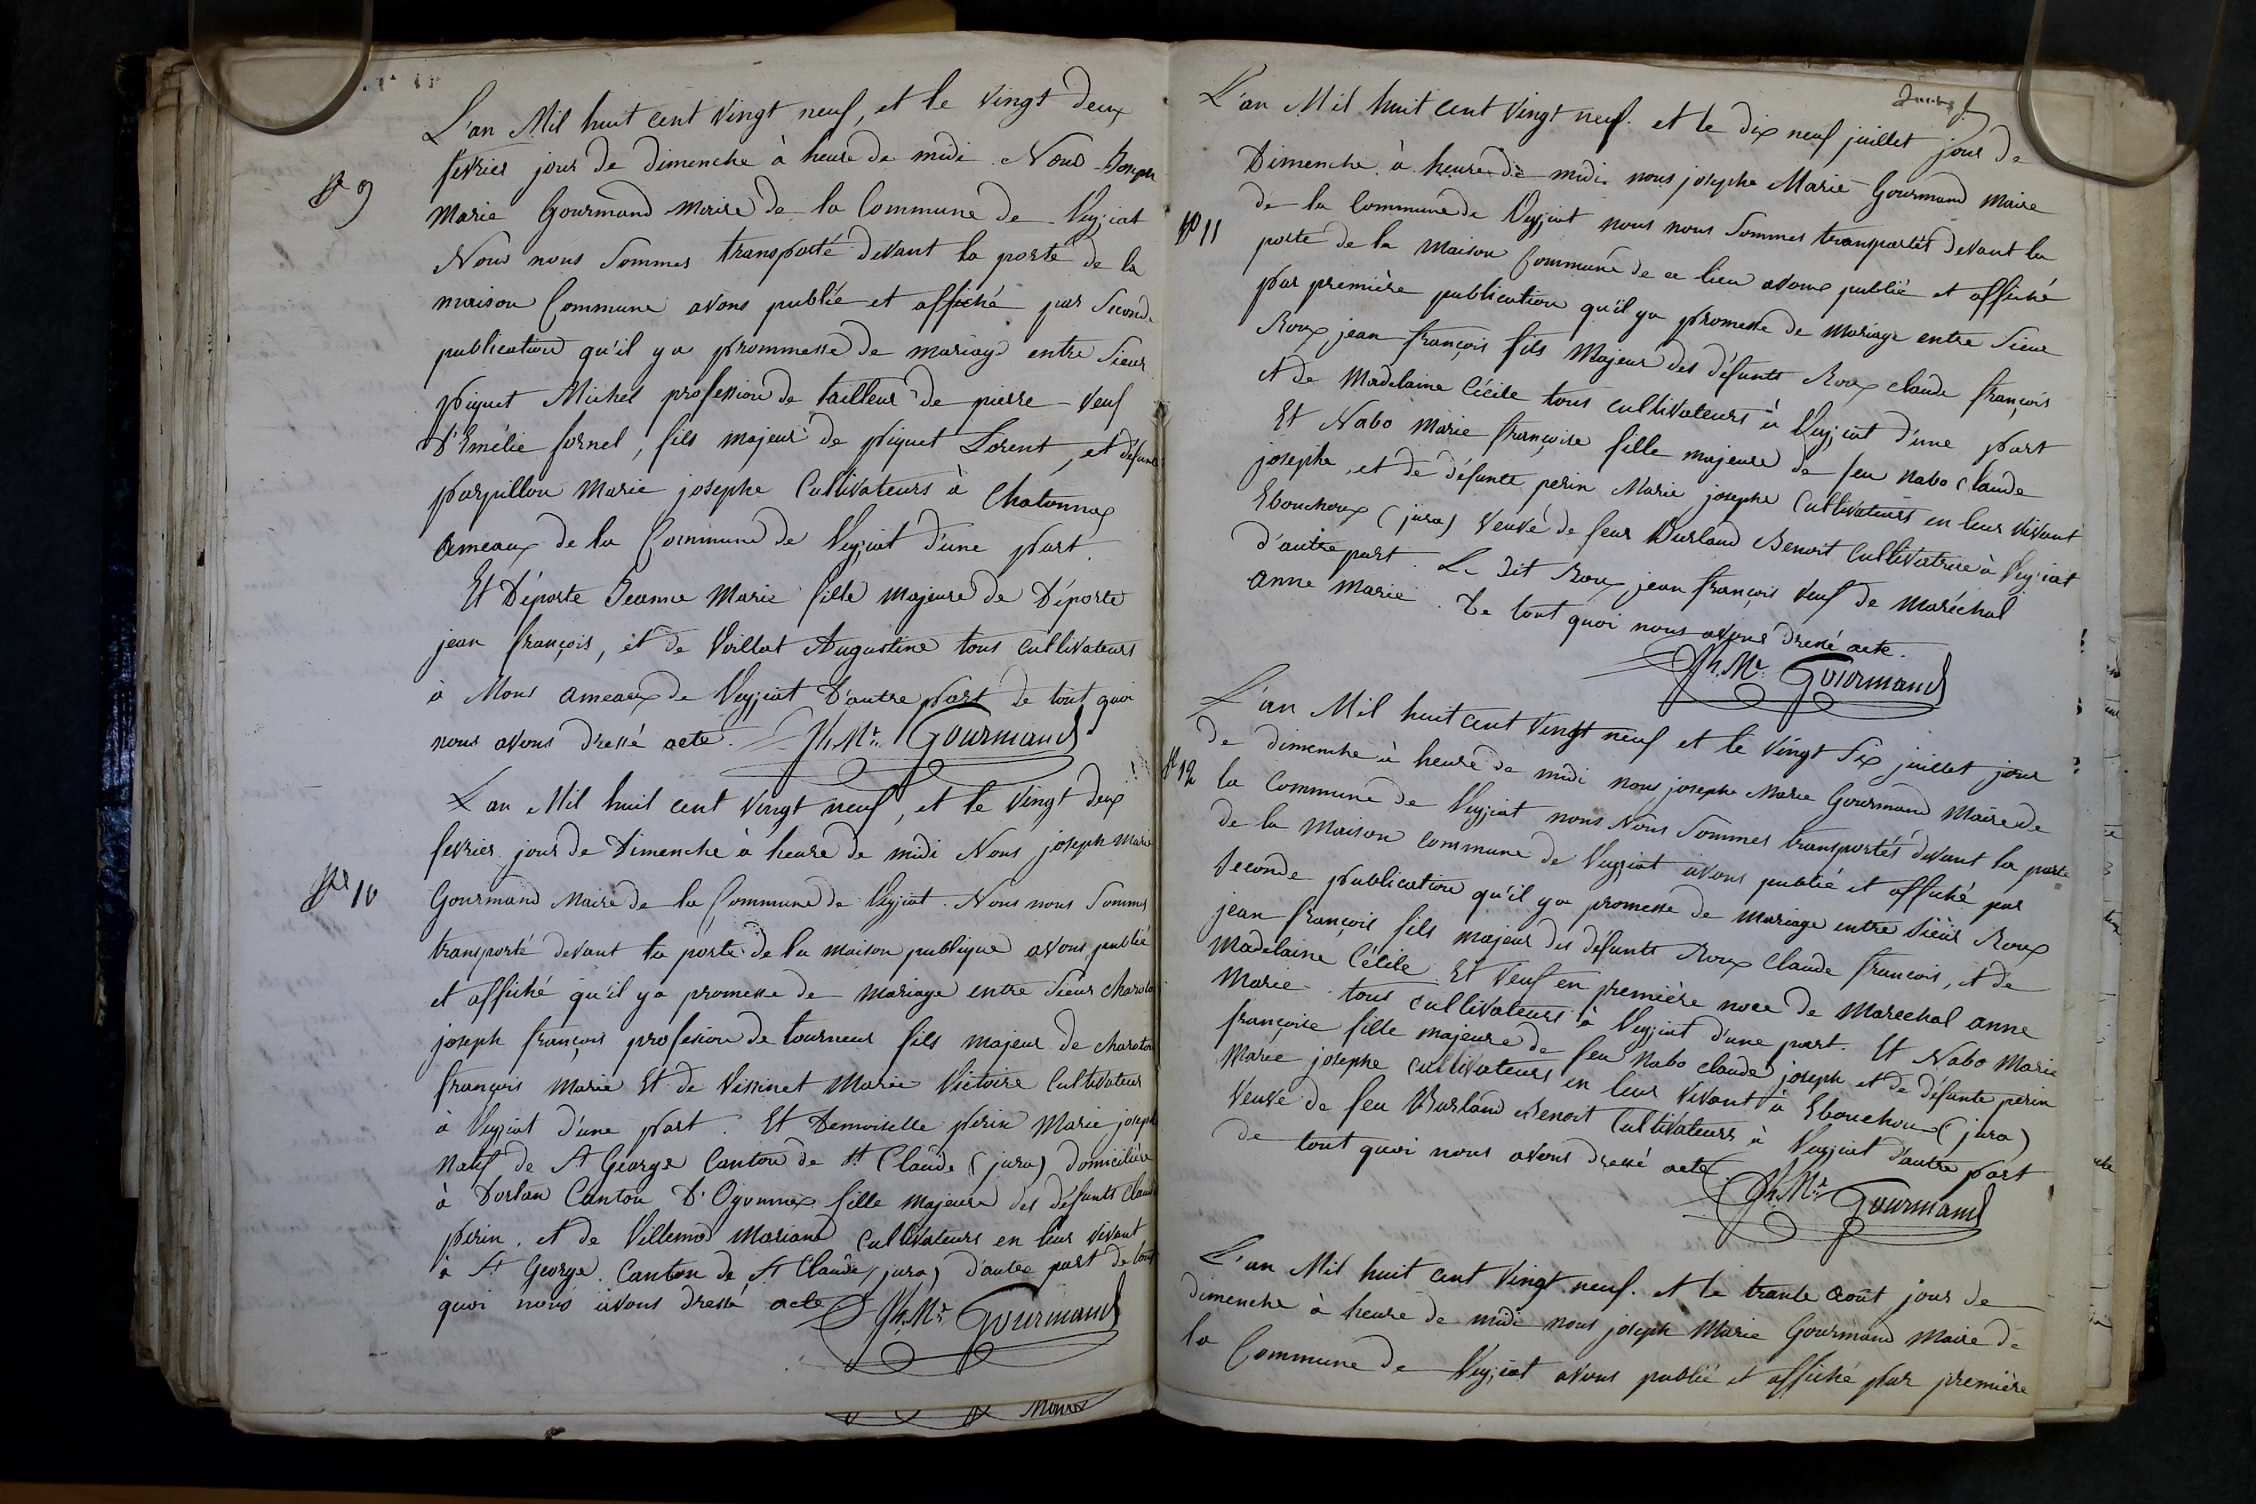 L'an Mil huit cent vingt neuf, et le vingt deux
N° 9
fevrier jour de dimenche à heure de midi Nous Joseph
Marie Gourmand Maire de la Commune de Veyziat
Nous nous Sommes transporté devant la porte de la
maison Commune avons publié et affiché par Seconde
publication qu'il ya prommesse de mariage entre Sieur
piquet Michel profession de tailleur de pierre veuf
D'Emélie fornel, fils majeur de piquet Lorent, et défunte
parpillon Marie josephe Cultivateurs à Chatonnax
ameaux de la Commune de Veyziat d'une part.
Et Déporte Jeanne Marie fille majeure de Déporte
jean françois, et de Vaillat Augustine tous cultivateurs
à Mons ameaux de Veyziat D'autre part de tout quoi
nous avons dressé acte. Jh. Mie. Gourmand
L'an Mil huit cent vingt neuf, et le vingt deux
fevrier jour de Dimenche à heure de midi Nous joseph Marie
N° 10
Gourmand Maire de la Commune de Veyziat. Nous nous Sommes
transporté devant la porte de la maison publique avons publié
et affiché qu'il ya promesse de mariage entre Sieur
joseph françois profession de tourneur fils majeur de
françois Marie Et de Vissinet Marie Victoire Cultivateur
à Veyziat d'une part. Et Demoiselle perin Marie joseph
natif de St George Canton de St Claude (jura) domicilière
à Dortan Canton D'Oyonnax fille majeure des défunts Claude
perin, et de Villemod Mariane cultivateurs en leur vivant
à St George. Canton de St Claude (jura) d'autre part de tout
quoi nous avons dressé acte Jh. Mie Gourmand
L'an Mil huit cent vingt neuf. et le dix neuf juillet jour de
Dimenche à heure de midi nous josephe Marie Gourmand Maire
de la Commune de Veyziat nous nous Sommes transportés devant la
N° 11
porte de la Maison Commune de ce lieu avons publié et affiché
par première publication qu'il ya promesse de Mariage entre Sieur
Roux jean françois fils Majeur des défunts Roux claude françois
et de Madelaine Cécile tous cultivateurs à Veyziat d'une part
Et Nabo Marie françoise fille majeure de feu Nabo Claude
josephe, et de défunte perin Marie josephe Cultivateurs en leur vivant
Ebouchoux (jura) veuve de feur Burland Benoit Cultivatrice à Veyziat
d'autre part. Le dit Roux jean françois veuf de maréchal
anne Marie. De tout quoi nous avons dressé acte.
Jh. Mie. Gourmand
L'an Mil huit cent vingt neuf et le vingt Six juillet jour
de dimenche à heure de midi nous josephe Marie Gourmand Maire de
N° 12
la Commune de Veyziat nous Nous Sommes transportés devant la porte
de la Maison commune de Veyziat avons publié et affiché par
Seconde publication qu'il ya promesse de Mariage entre Sieur Roux
jean françois fils majeur des défunts Roux Claude françois, et de
Madelaine Cécile. Et Veuf en première noce de Marechal anne
Marie tous cultivateurs à Veyziat d'une part. Et Nabo Marie
françoise fille majeure de feu Nabo claude joseph et de défunte perin
Marie josephe cultivateurs en leur vivant à Ebouchoux (jura)
Veuve de feu Burland Benoit Cultivateurs à Veyziat d'autre part
de tout quoi nous avons dressé acte
Jh. Mie Gourmand
L'an Mil huit cent vingt neuf. et le trante août jour de
dimenche à heure de midi nous joseph Marie Gourmand Maire de
la Commune de Veyziat avons publié et affiché par première